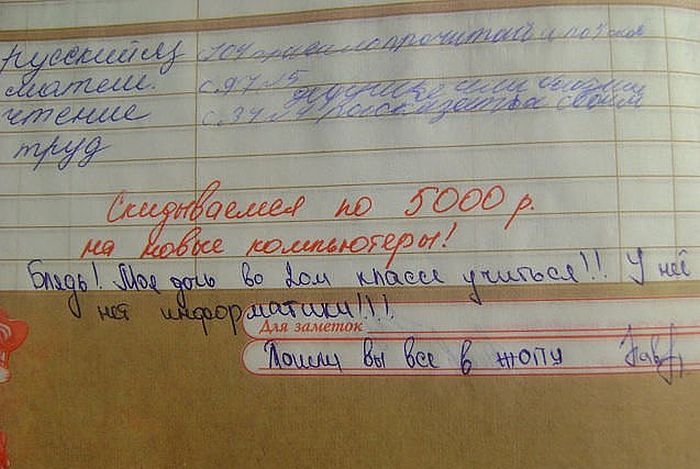 русский яз с.104 правило прочитай и
матем. с. 97 №5
чтение с. 34 №4 рассказать о своём
труд
Скидываемся по 5000 р.
на новые компьютеры!
Блядь! Моя дочь во 2ом классе учиться!!! У неё
нет информатики!!!!
Для заметок
Пошли вы все в жопу